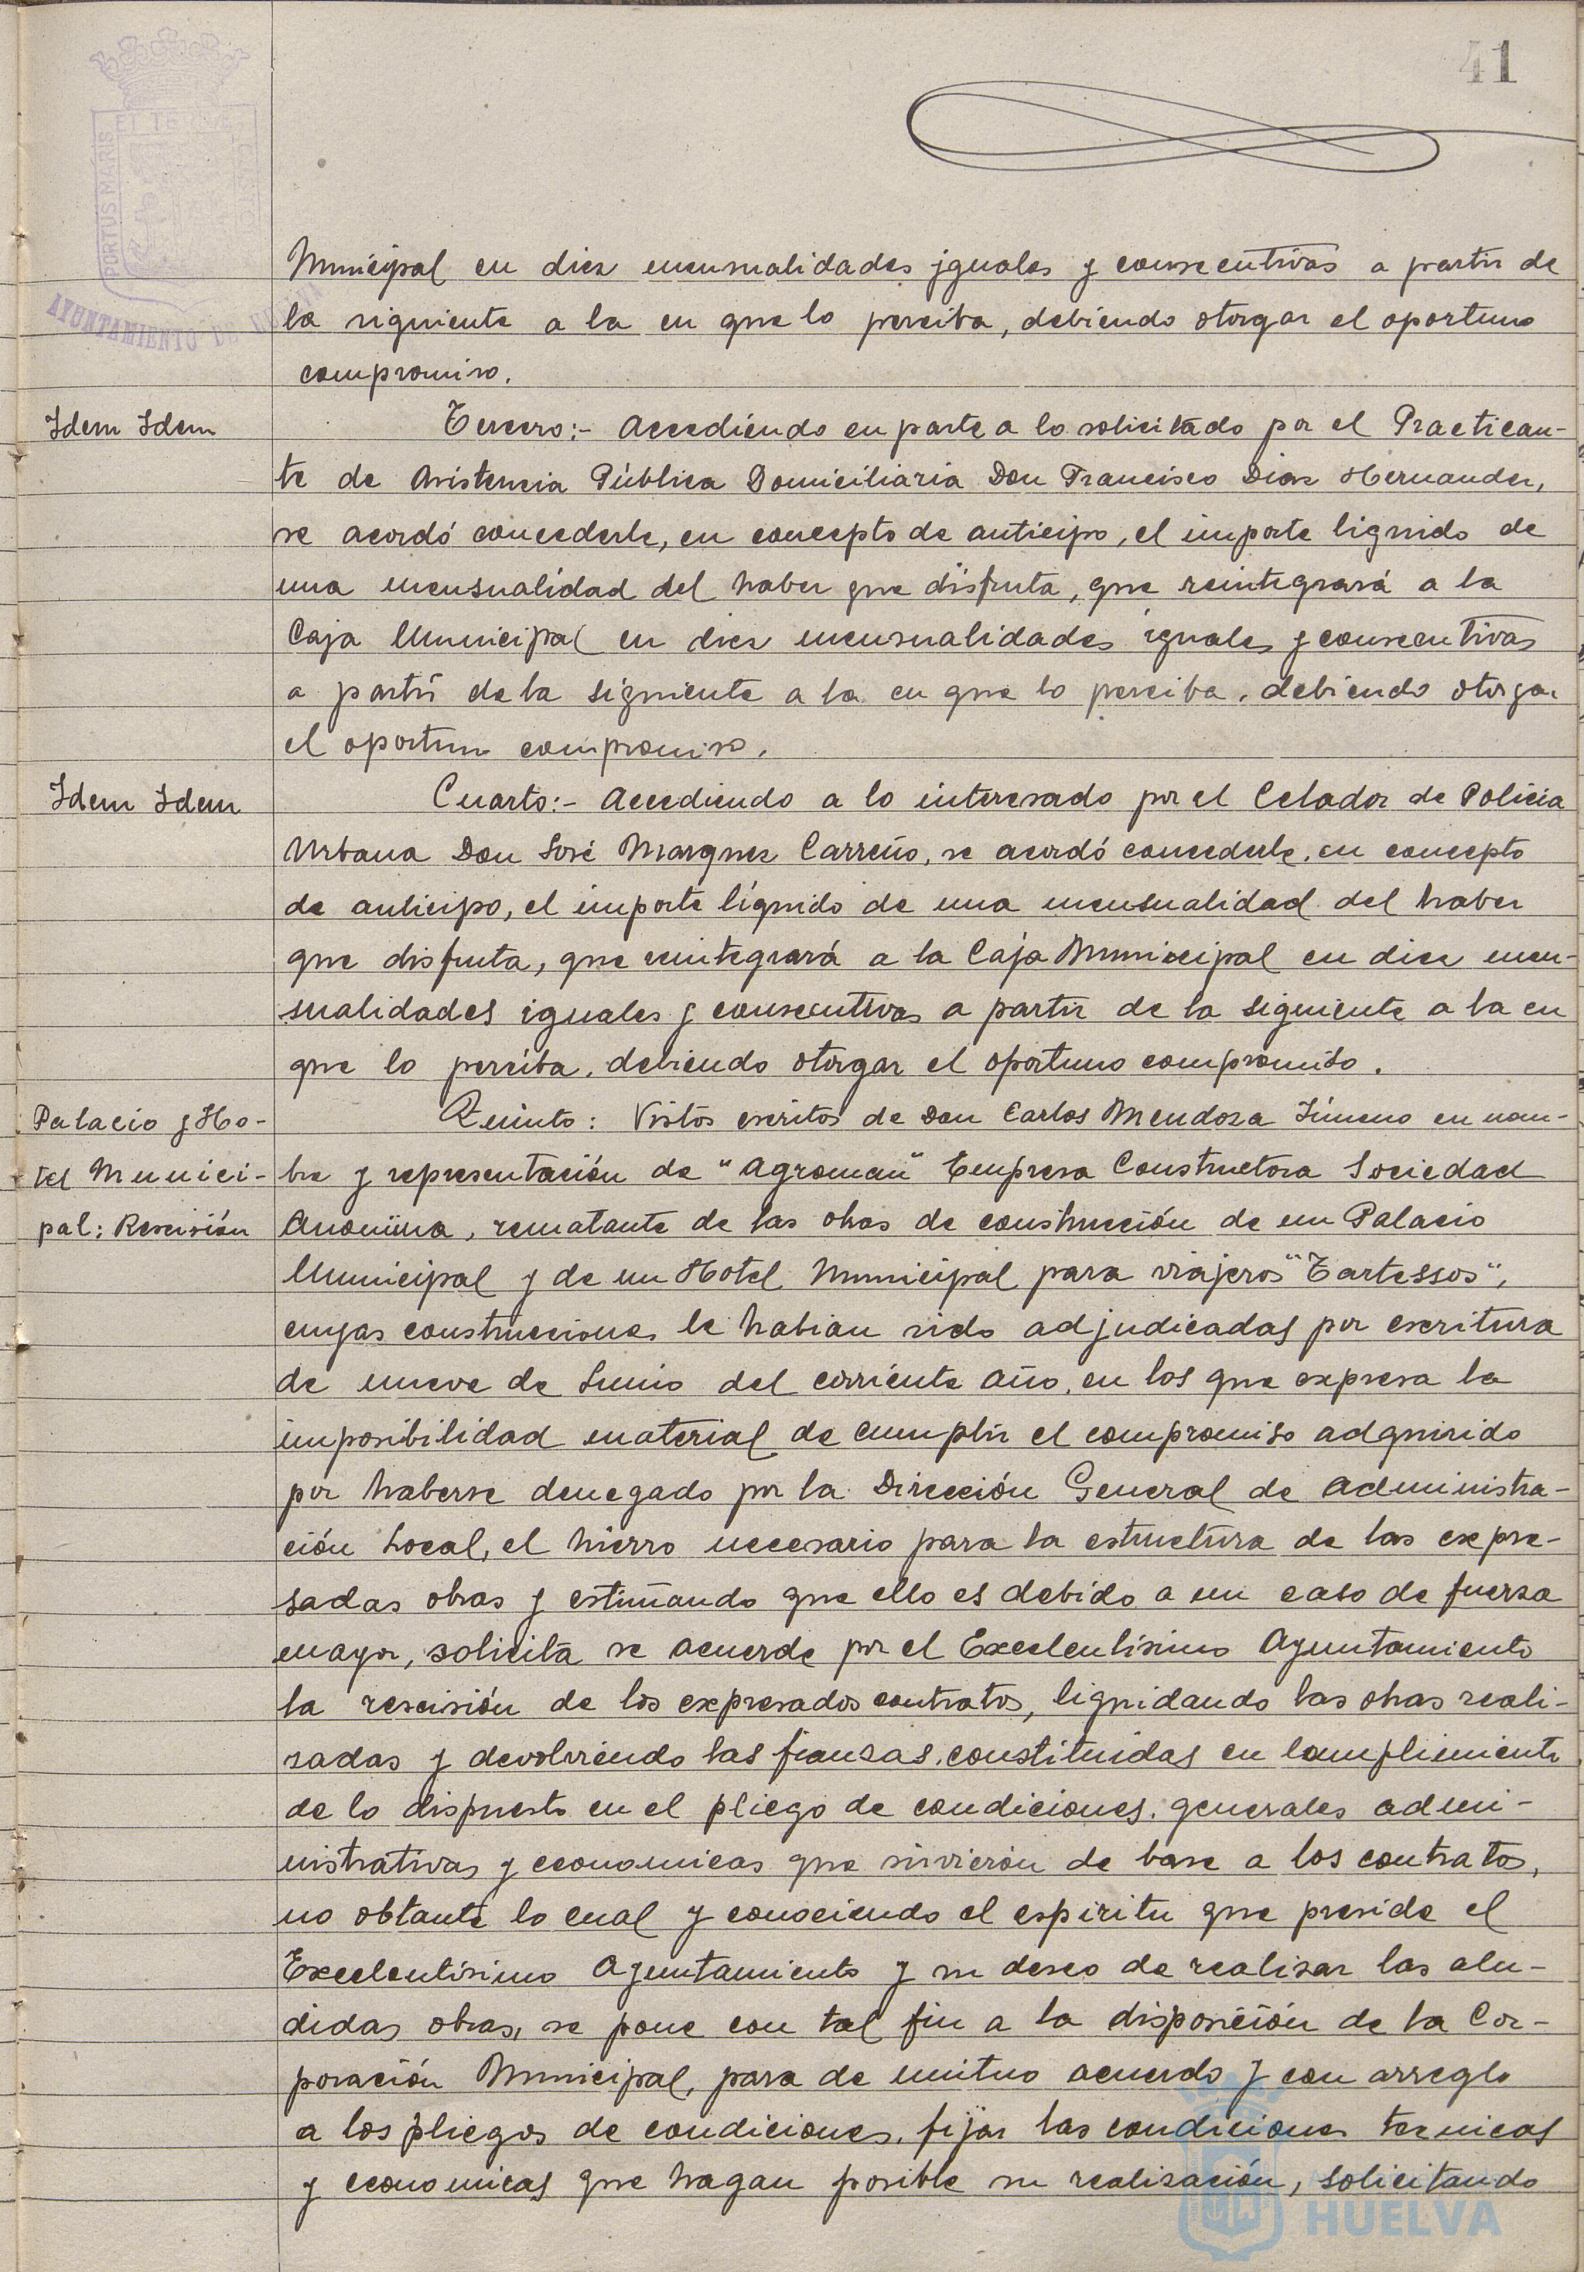 41
PORTUS MARIS
ET TERRAE
CUSTODIA
AYUNTAMIENTO DE HUELVA
Municipal en diez mensualidades iguales y consecutivas a partir de
la siguiente a la en que lo perciba, debiendo otorgar el oportuno
compromiso.
Idem Idem
Tercero:- Accediendo en parte a lo solicitado por el Practican-
te de Asistencia Pública Domiciliaria Don Francisco Diaz Hernandez,
se acordó concederle, en concepto de anticipo, el importe liquido de
una mensualidad del haber que disfruta, que reintegrará a la
Caja Municipal en diez mensualidades iguales y consecutivas
a partir de la siguiente a la en que lo perciba, debiendo otorgar
el oportuno compromiso.
Idem Idem
Cuarto:- Accediendo a lo interesado por el Celador de Policia
Urbana Don José Marquez Carreño, se acordó concederle, en concepto
de anticipo, el importe líquido de una mensualidad del haber
que disfruta, que reintegrará a la Caja Municipal en diez men-
sualidades iguales y consecutivas a partir de la siguiente a la en
que lo perciba, debiendo otorgar el oportuno compromiso.
Palacio y Ho-
tel Munici-
pal: Rescisión
Quinto: Vistos escritos de Don Carlos Mendoza Jimeno en nom-
bre y representación de "Agroman" Empresa Constructora Sociedad
Anonima, rematante de las obras de construcción de un Palacio
Municipal y de un Hotel Municipal para viajeros "Tartessos",
cuyas construcciones le habian sido adjudicadas por escritura
de nueve de Junio del corriente año, en los que expresa la
imposibilidad material de cumplir el compromiso adquirido
por haberse denegado por la Dirección General de Administra-
ción Local, el hierro necesario para la estructura de las expre-
sadas obras y estimando que ello es debido a un caso de fuerza
mayor, solicita se acuerde por el Excelentísimo Ayuntamiento
la rescisión de los expresados contratos, liquidando las obras reali-
zadas y devolviendo las fianzas constituidas en cumplimiento
de lo dispuesto en el pliego de condiciones generales admi-
nistrativas y economicas que sirvierón de base a los contratos,
no obtante lo cual y conociendo el espiritu que preside el
Excelentísimo Ayuntamiento y su deseo de realizar las alu-
didas obras, se pone con tal fin a la disposición de la Cor-
poración Municipal, para de mutuo acuerdo y con arreglo
a los pliegos de condiciones, fijar las condiciones tecnicas
y economicas que hagan posible su realización, solicitando
HUELVA